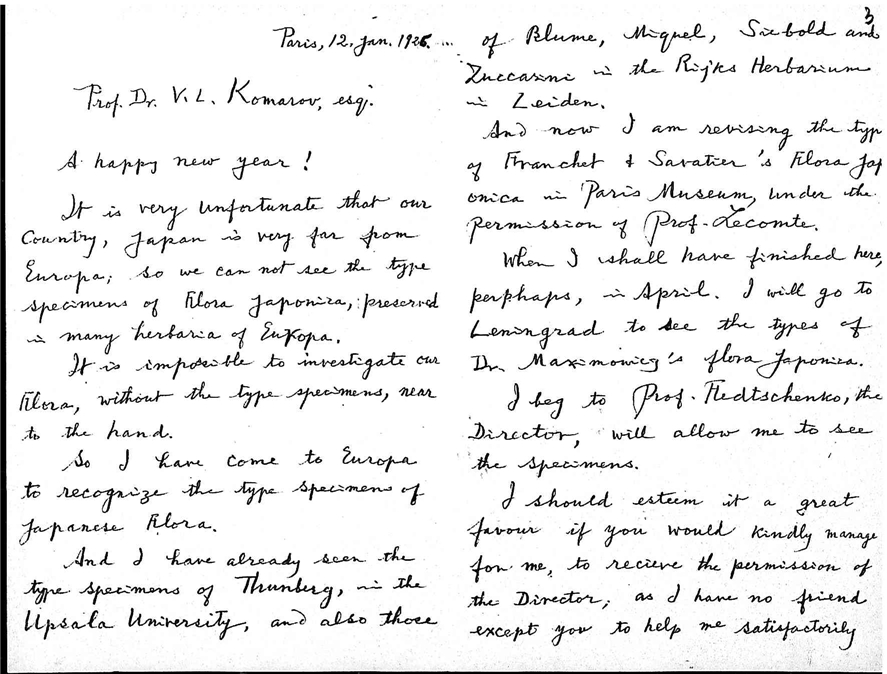 Paris, 12, Jan. 1926. ...
Prof. Dr. V. L. Komarov, esq.
A happy new year!
It is very unfortunate that our
Country, Japan is very far from
Europa; so we can not see the type
specimens of Flora Japonica, preserved
in many herbaria of Europa.
It is imposible to investigate our
Flora, without the type specimens, near
to the hand.
So I have come to Europa
to recognize the type specimens of
Japanese Flora.
And I have already seen the
type specimens of Thunberg, in the
Upsala University, and also those
3
of Blume, Miquel, Siebold and
Zuccarini in the Rijks Herbarium
in Leiden.
And now I am revising the typ
of Franchet & Savatier's Flora Jap
onica in Paris Museum, under the
permission of Prof. Lecomte.
When I shall have finished here,
perphaps, in April. I will go to
Leningrad to see the types of
Dr. Maximowicz's flora Japonica.
I beg to Prof. Fledtschenko, the
Director, will allow me to see
the specimens.
I should esteem it a great
favour if you would kindly manage
for me, to recieve the permission of
the Director; as I have no friend
except you to help me satisfactorily